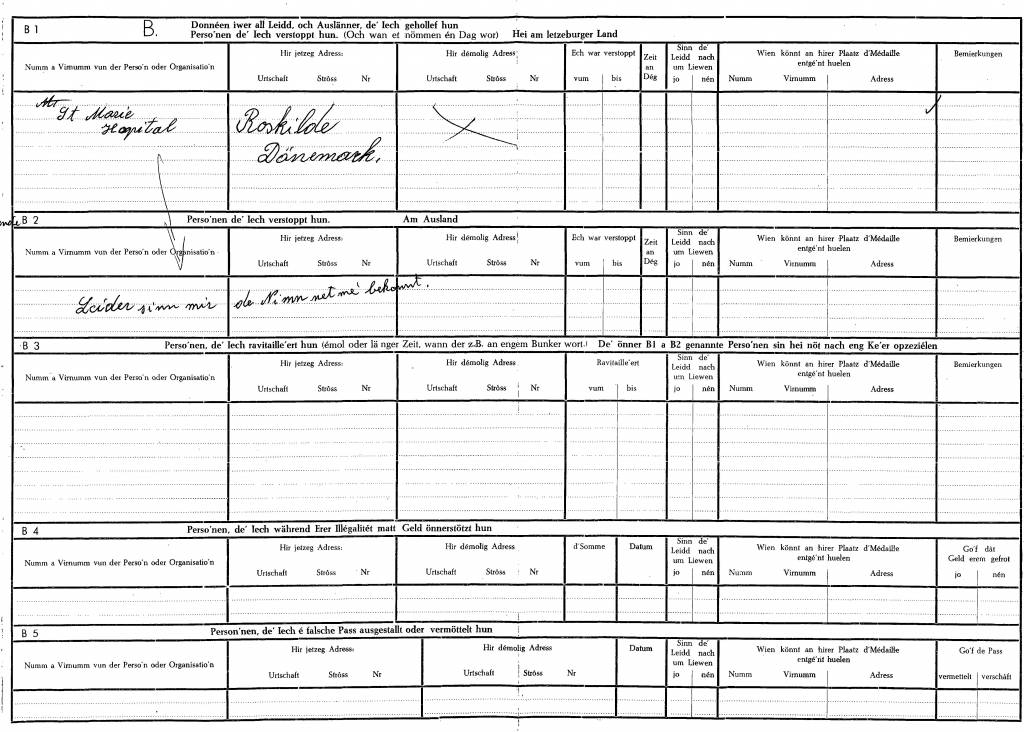 B 1
B.
Donnéen iwer all Leidd, och Auslänner, de' Iech gehollef hun
Perso'nen de' Iech verstoppt hun. (Och wan et nömmen én Dag wor) Hei am letzeburger Land
Numm a Virnumm vun der Perso'n oder Organisatio'n
Hir jetzeg Adress:
Urtschaft Strôss Nr
Hir démolig Adress:
Urtschaft Strôss Nr
Ech war verstoppt
vum bis
Zeit
an
Dég
Sinn de'
Leidd nach
um Liewen
jo nén
Wien könnt an hirer Plaatz d'Médaille
entgé'nt huelen
Numm Virnumm Adress
Bemierkungen
St Marie
Hospital
Roskilde
Dänemark.
B 2
Perso'nen de' Iech verstoppt hun. Am Ausland
Numm a Virnumm vun der Perso'n oder Organisatio'n
Hir jetzeg Adress:
Urtschaft Strôss Nr
Hir démolig Adress:
Urtschaft Strôss Nr
Ech war verstoppt
vum bis
Zeit
an
Dég
Sinn de'
Leidd nach
um Liewen
jo nén
Wien könnt an hirer Plaatz d'Médaille
entgé'nt huelen
Numm Virnumm Adress
Bemierkungen
Leider sinn mir de Nimn net me' bekannt.
B 3
Perso'nen, de' Iech ravitaille'ert hun (émol oder länger Zeit, wann der z.B. an engem Bunker wort.) De' önner B1 a B2 genannte Perso'nen sin hei nöt nach eng Ke'er opzeziélen
Numm a Virnumm vun der Perso'n oder Organisatio'n
Hir jetzeg Adress:
Urtschaft Strôss Nr
Hir démolig Adress:
Urtschaft Strôss Nr
Ravitaille'ert
vum bis
Sinn de'
Leidd nach
um Liewen
jo nén
Wien könnt an hirer Plaatz d'Médaille
entgé'nt huelen
Numm Virnumm Adress
Bemierkungen
B 4
Perso'nen, de' Iech während Erer Illégalitét matt Geld önnerstötzt hun
Numm a Virnumm vun der Perso'n oder Organisatio'n
Hir jetzeg Adress:
Urtschaft Strôss Nr
Hir démolig Adress
Urtschaft Strôss Nr
d'Somme
Datum
Sinn de'
Leidd nach
um Liewen
jo nén
Wien könnt an hirer Plaatz d'Médaille
entgé'nt huelen
Numm Virnumm Adress
Go'f dât
Geld erem gefrot
jo nén
B 5
Person'nen, de' Iech é falsche Pass ausgestallt oder vermöttelt hun
Numm a Virnumm vun der Perso'n oder Organisatio'n
Hir jetzeg Adress:
Urtschaft Strôss Nr
Hir démolig Adress
Urtschaft Strôss Nr
Datum
Sinn de'
Leidd nach
um Liewen
jo nén
Wien könnt an hirer Plaatz d'Médaille
entgé'nt huelen
Numm Virnumm Adress
Go'f de Pass
vermettelt verschâft